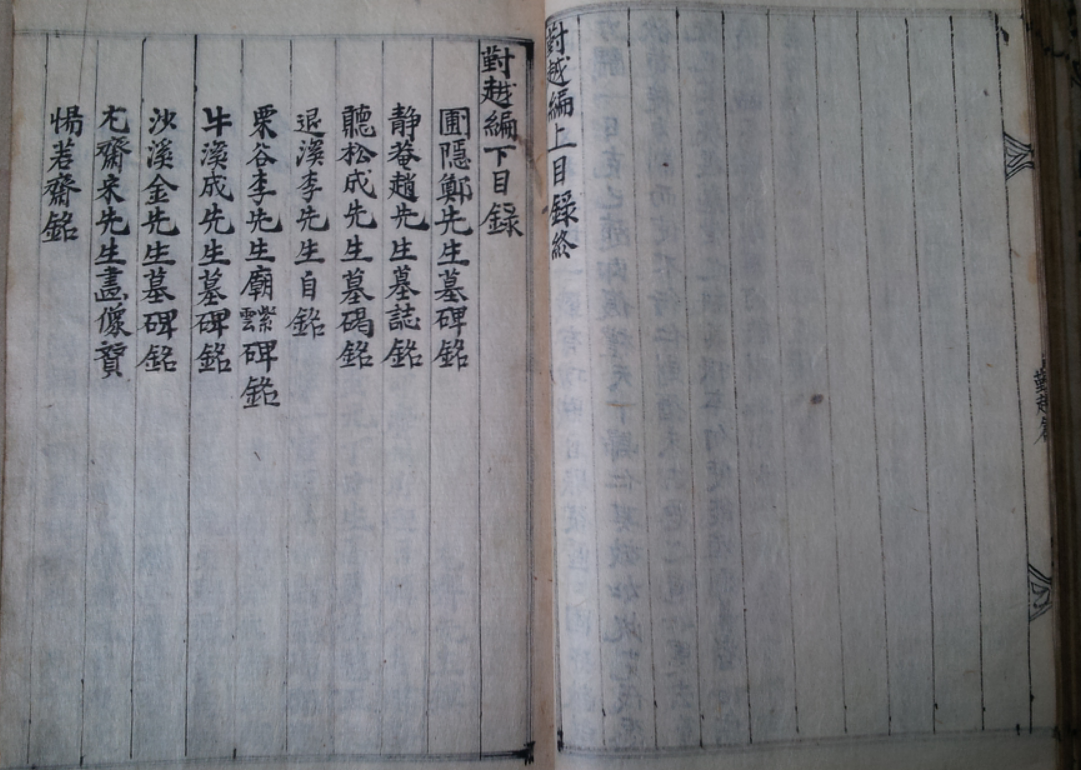 對越編上目錄終
對越編下目錄
圃隱鄭先生墓碑銘
靜菴趙先生墓誌銘
聽松成先生墓碣銘
退溪李先生自銘
栗谷李先生廟紫雲碑銘
牛溪成先生墓碑銘
沙溪金先生墓碑銘
尤齋宋先生畫像贊
惕若齋銘